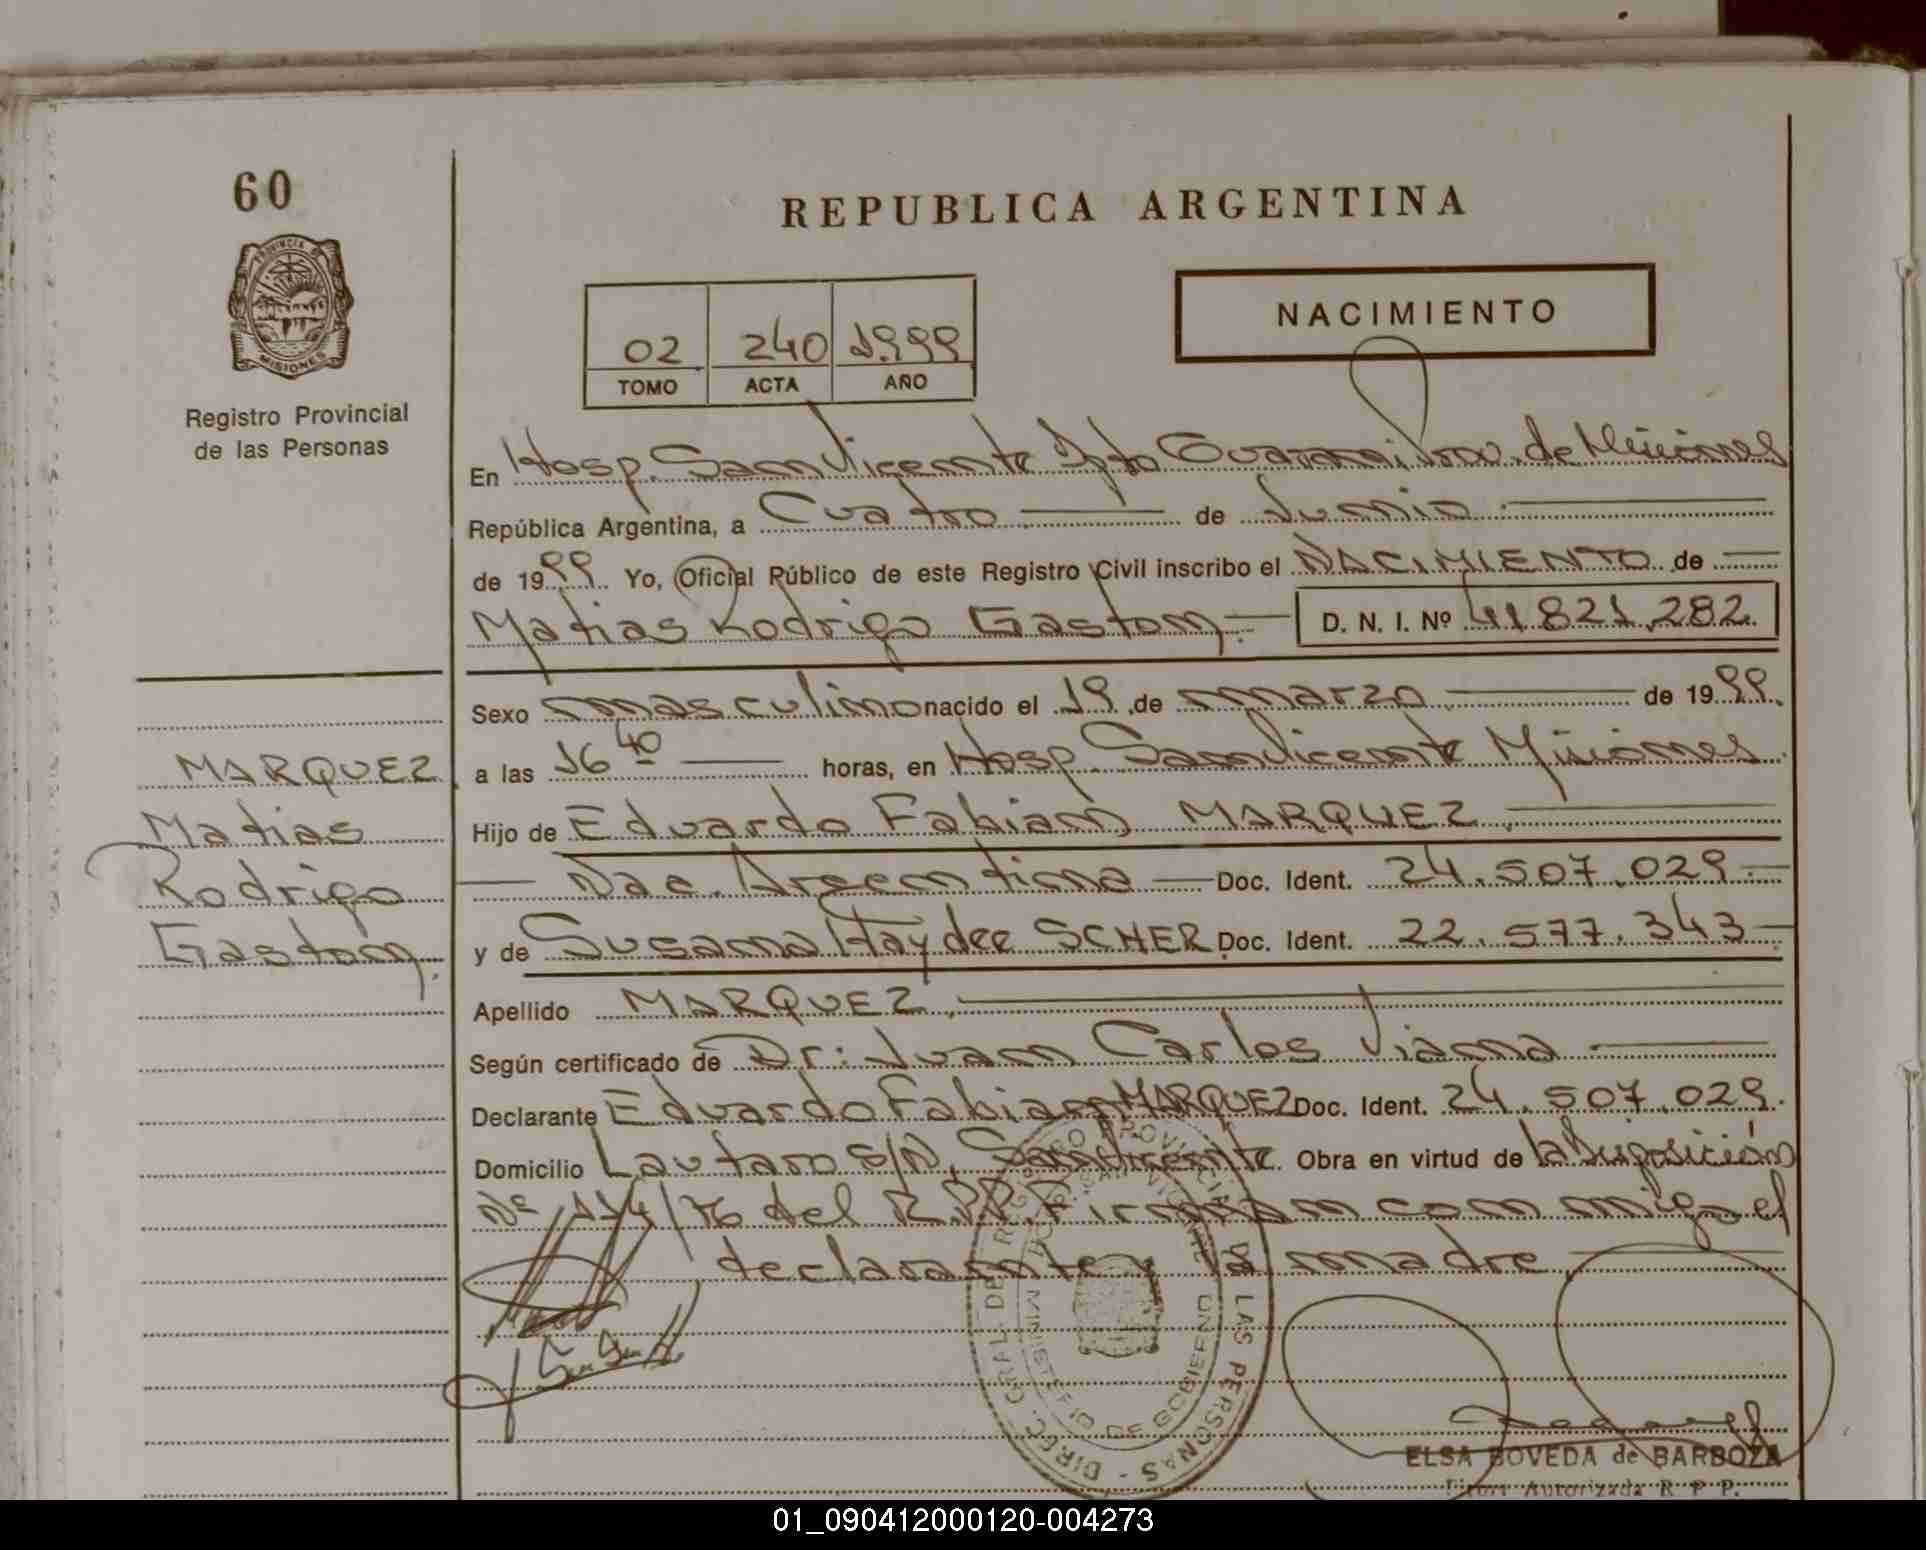 60
REPUBLICA ARGENTINA
PROVINCIA DE
MISIONES
Registro Provincial
de las Personas
02 240 1999
TOMO ACTA AÑO
NACIMIENTO
En Hosp. San Vicente Dpto Guarani, Prov. de Misiones
República Argentina, a Cuatro de Junio
de 1999. Yo, Oficial Público de este Registro Civil inscribo el NACIMIENTO de
Matias Rodrigo Gaston. D. N. I. Nº 41.821.282.
Sexo masculino nacido el 19 de marzo de 1999.
a las 16 40 horas, en Hosp. San Vicente Misiones.
MARQUEZ
Matias
Rodrigo
Gaston.
Hijo de Eduardo Fabian MARQUEZ.
Nac. Argentina Doc. Ident. 24.507.029.
y de Susana Haydee SCHER Doc. Ident. 22.577.343
Apellido MARQUEZ.
Según certificado de Dr: Juan Carlos Viana
Declarante Eduardo Fabian MARQUEZ Doc. Ident. 24.507.029.
Domicilio Lautaro S/N, San Vicente. Obra en virtud de la Disposición
Nº 114/76 del R.P.P. Firman conmigo el
declarante y la madre.
DIREC. GRAL. DEL REGISTRO PROVINCIAL DE LAS PERSONAS
MINISTERIO DE GOBIERNO
ELSA BOVEDA de BARBOZA
Firma Autorizada R P P.
01_090412000120-004273